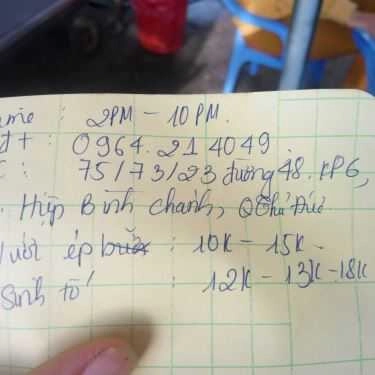 ame : 2PM - 10PM.
đt : 0964.214049
C : 75/73/23 đường 48. KP6,
. Hiệp Bình chánh, Q Thủ Đức
Nước ép : 10K - 15K.
Sinh tố : 12K - 13K - 18K